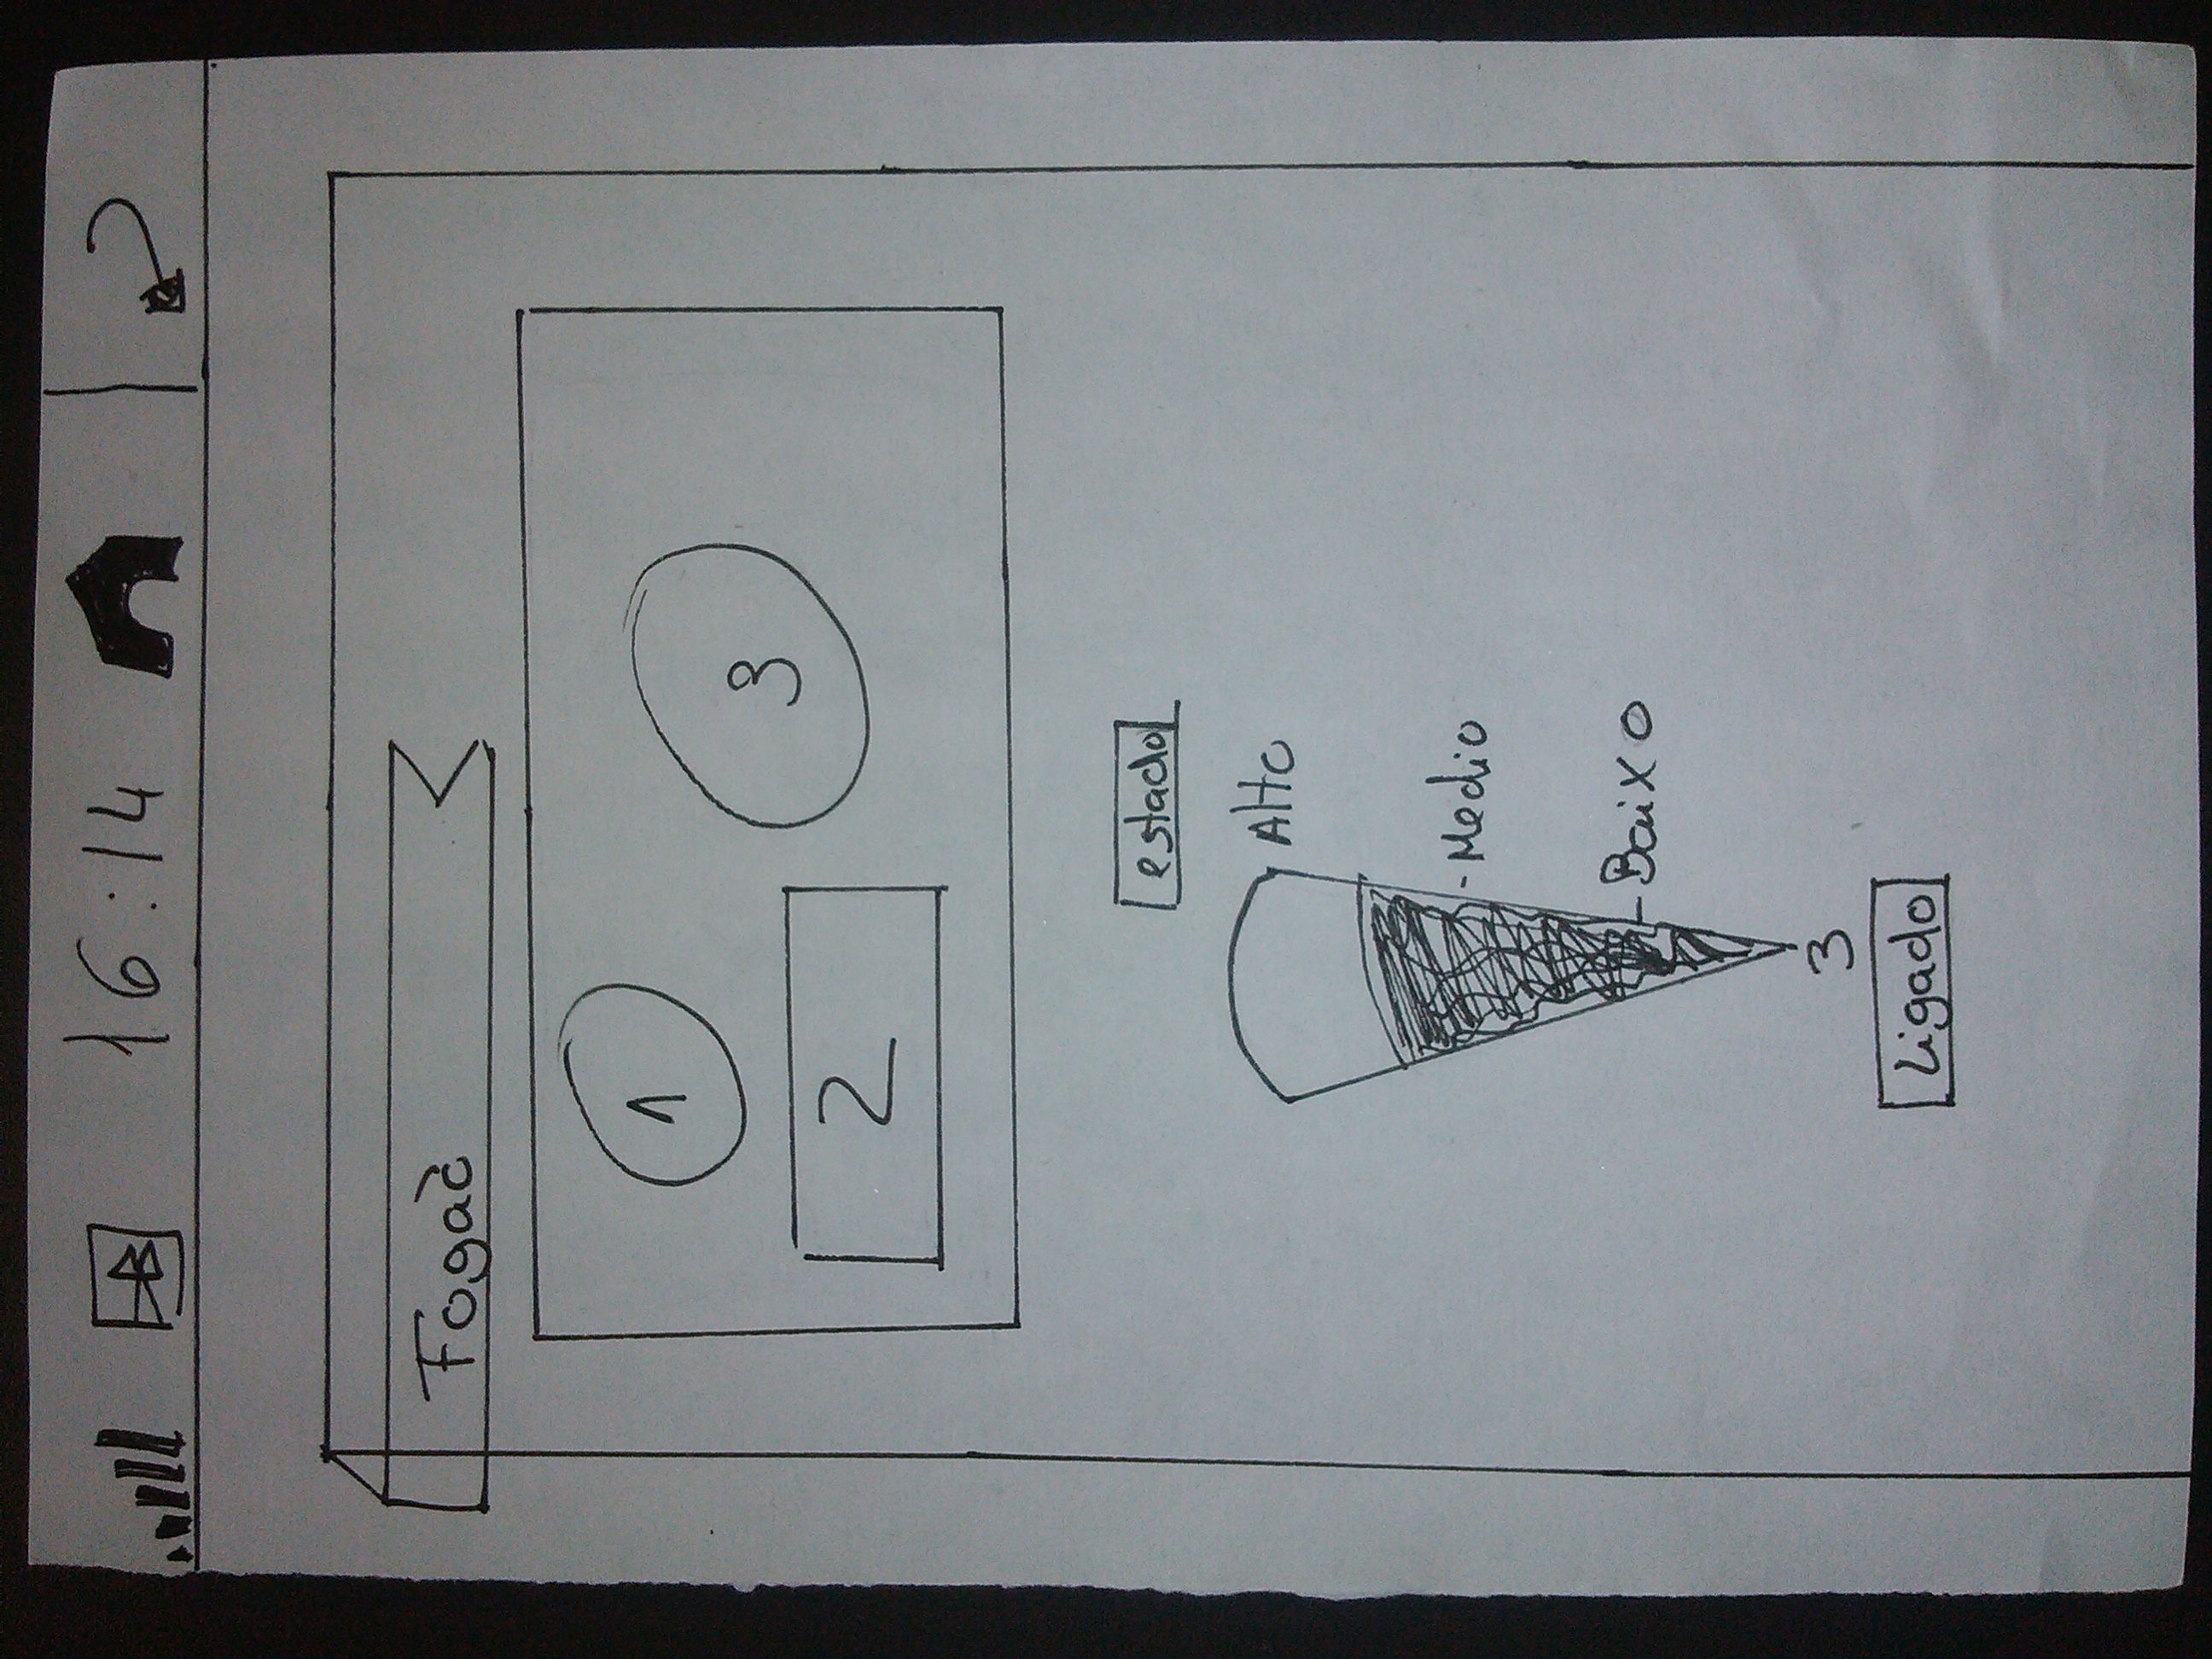 16:14
Fogaò
1
3
2
estado
Alto
- Medio
- Baixo
3
Ligado